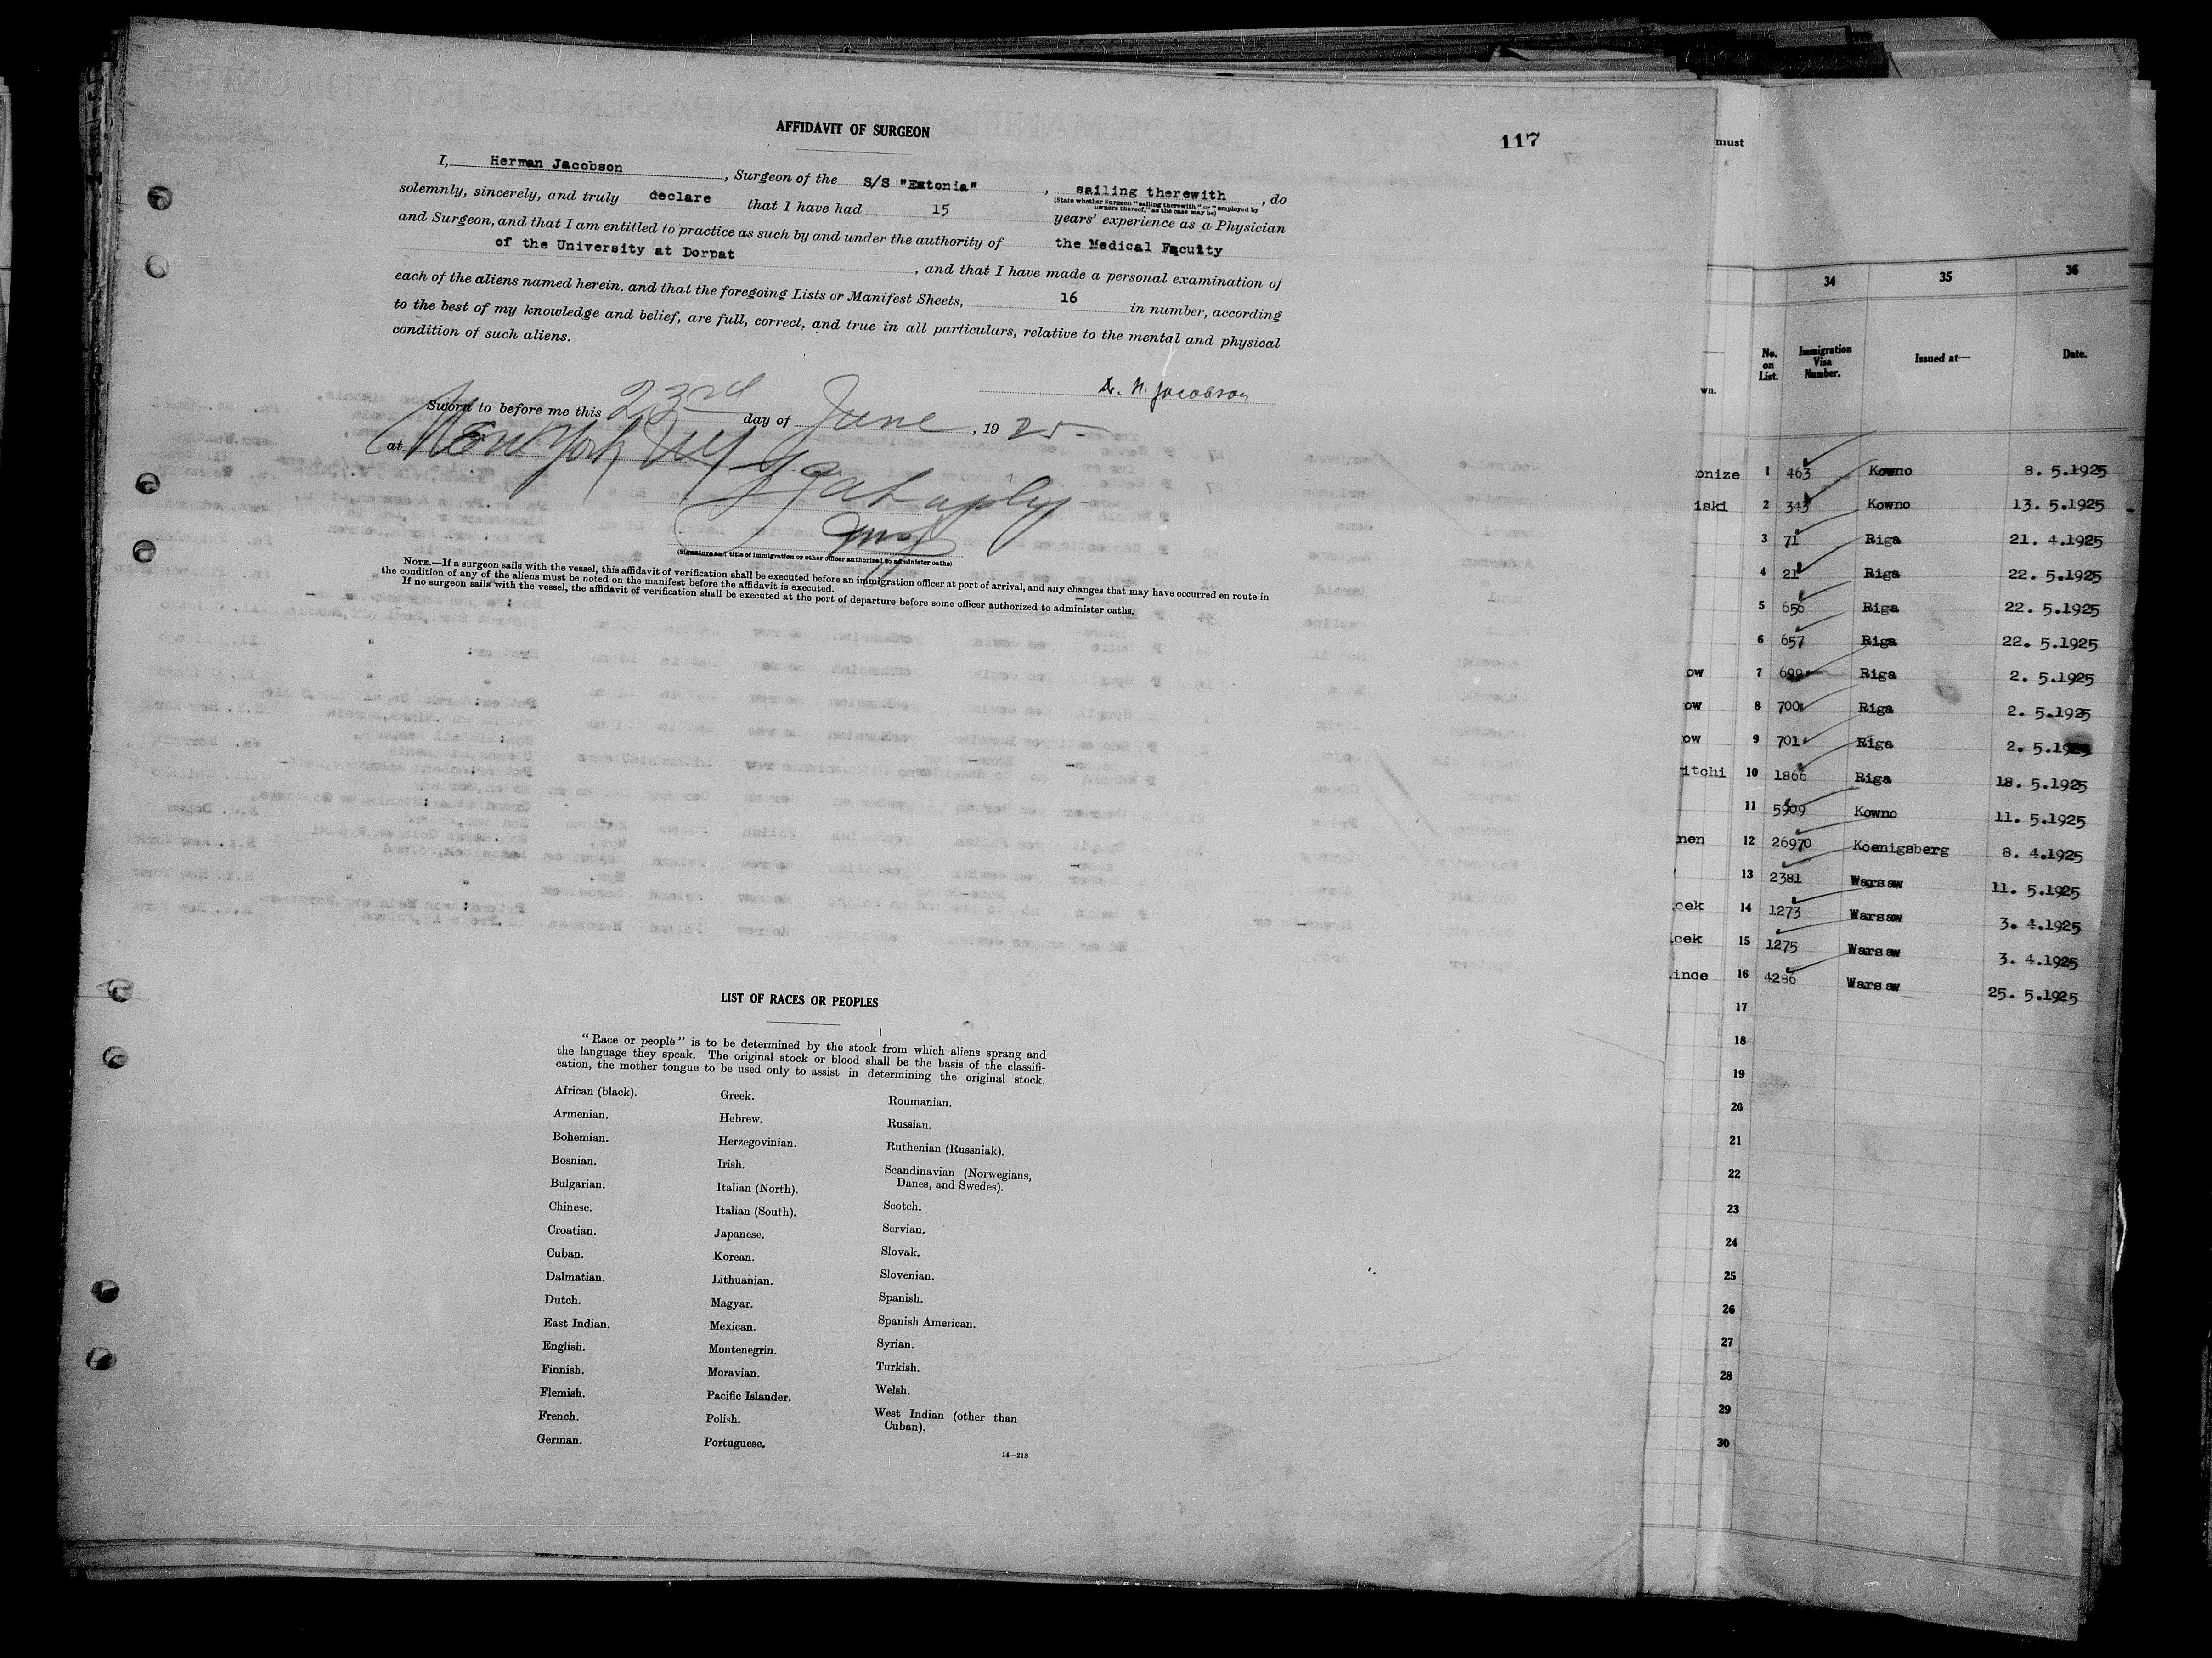 117
AFFIDAVIT OF SURGEON
I, Herman Jacobson, Surgeon of the S/S "Estonia", sailing therewith, do
(State whether Surgeon "sailing therewith" or "employed by
owners thereof," as the case may be)
solemnly, sincerely, and truly declare that I have had 15 years' experience as a Physician
and Surgeon, and that I am entitled to practice as such by and under the authority of the Medical Faculty
of the University at Dorpat, and that I have made a personal examination of
each of the aliens named herein, and that the foregoing Lists or Manifest Sheets, 16 in number, according
to the best of my knowledge and belief, are full, correct, and true in all particulars, relative to the mental and physical
condition of such aliens.
Dr. H. Jacobson
Sworn to before me this 23rd day of June, 1925
at New York
(Signature and title of immigration or other officer authorized to administer oaths)
NOTE.—If a surgeon sails with the vessel, this affidavit of verification shall be executed before an immigration officer at port of arrival, and any changes that may have occurred en route in
the condition of any of the aliens must be noted on the manifest before the affidavit is executed.
If no surgeon sails with the vessel, the affidavit of verification shall be executed at the port of departure before some officer authorized to administer oaths.
LIST OF RACES OR PEOPLES
"Race or people" is to be determined by the stock from which aliens sprang and
the language they speak. The original stock or blood shall be the basis of the classifi-
cation, the mother tongue to be used only to assist in determining the original stock.
African (black).
Armenian.
Bohemian.
Bosnian.
Bulgarian.
Chinese.
Croatian.
Cuban.
Dalmatian.
Dutch.
East Indian.
English.
Finnish.
Flemish.
French.
German.
Greek.
Hebrew.
Herzegovinian.
Irish.
Italian (North).
Italian (South).
Japanese.
Korean.
Lithuanian.
Magyar.
Mexican.
Montenegrin.
Moravian.
Pacific Islander.
Polish.
Portuguese.
Roumanian.
Russian.
Ruthenian (Russniak).
Scandinavian (Norwegians,
Danes, and Swedes).
Scotch.
Servian.
Slovak.
Slovenian.
Spanish.
Spanish American.
Syrian.
Turkish.
Welsh.
West Indian (other than
Cuban).
14—213
must
wn.
34 35 36
No. on List. Immigration Visa Number. Issued at— Date.
onize 1 463 Kowno 8. 5.1925
iski 2 343 Kowno 13. 5.1925
3 71 Riga 21. 4.1925
4 21 Riga 22. 5.1925
5 656 Riga 22. 5.1925
6 657 Riga 22. 5.1925
ow 7 699 Riga 2. 5.1925
ow 8 700 Riga 2. 5.1925
ow 9 701 Riga 2. 5.1925
itchi 10 1866 Riga 18. 5.1925
11 5909 Kowno 11. 5.1925
nen 12 26970 Koenigsberg 8. 4.1925
13 2381 Warsaw 11. 5.1925
cek 14 1273 Warsaw 3. 4.1925
cek 15 1275 Warsaw 3. 4.1925
ince 16 4286 Warsaw 25. 5.1925
17
18
19
20
21
22
23
24
25
26
27
28
29
30